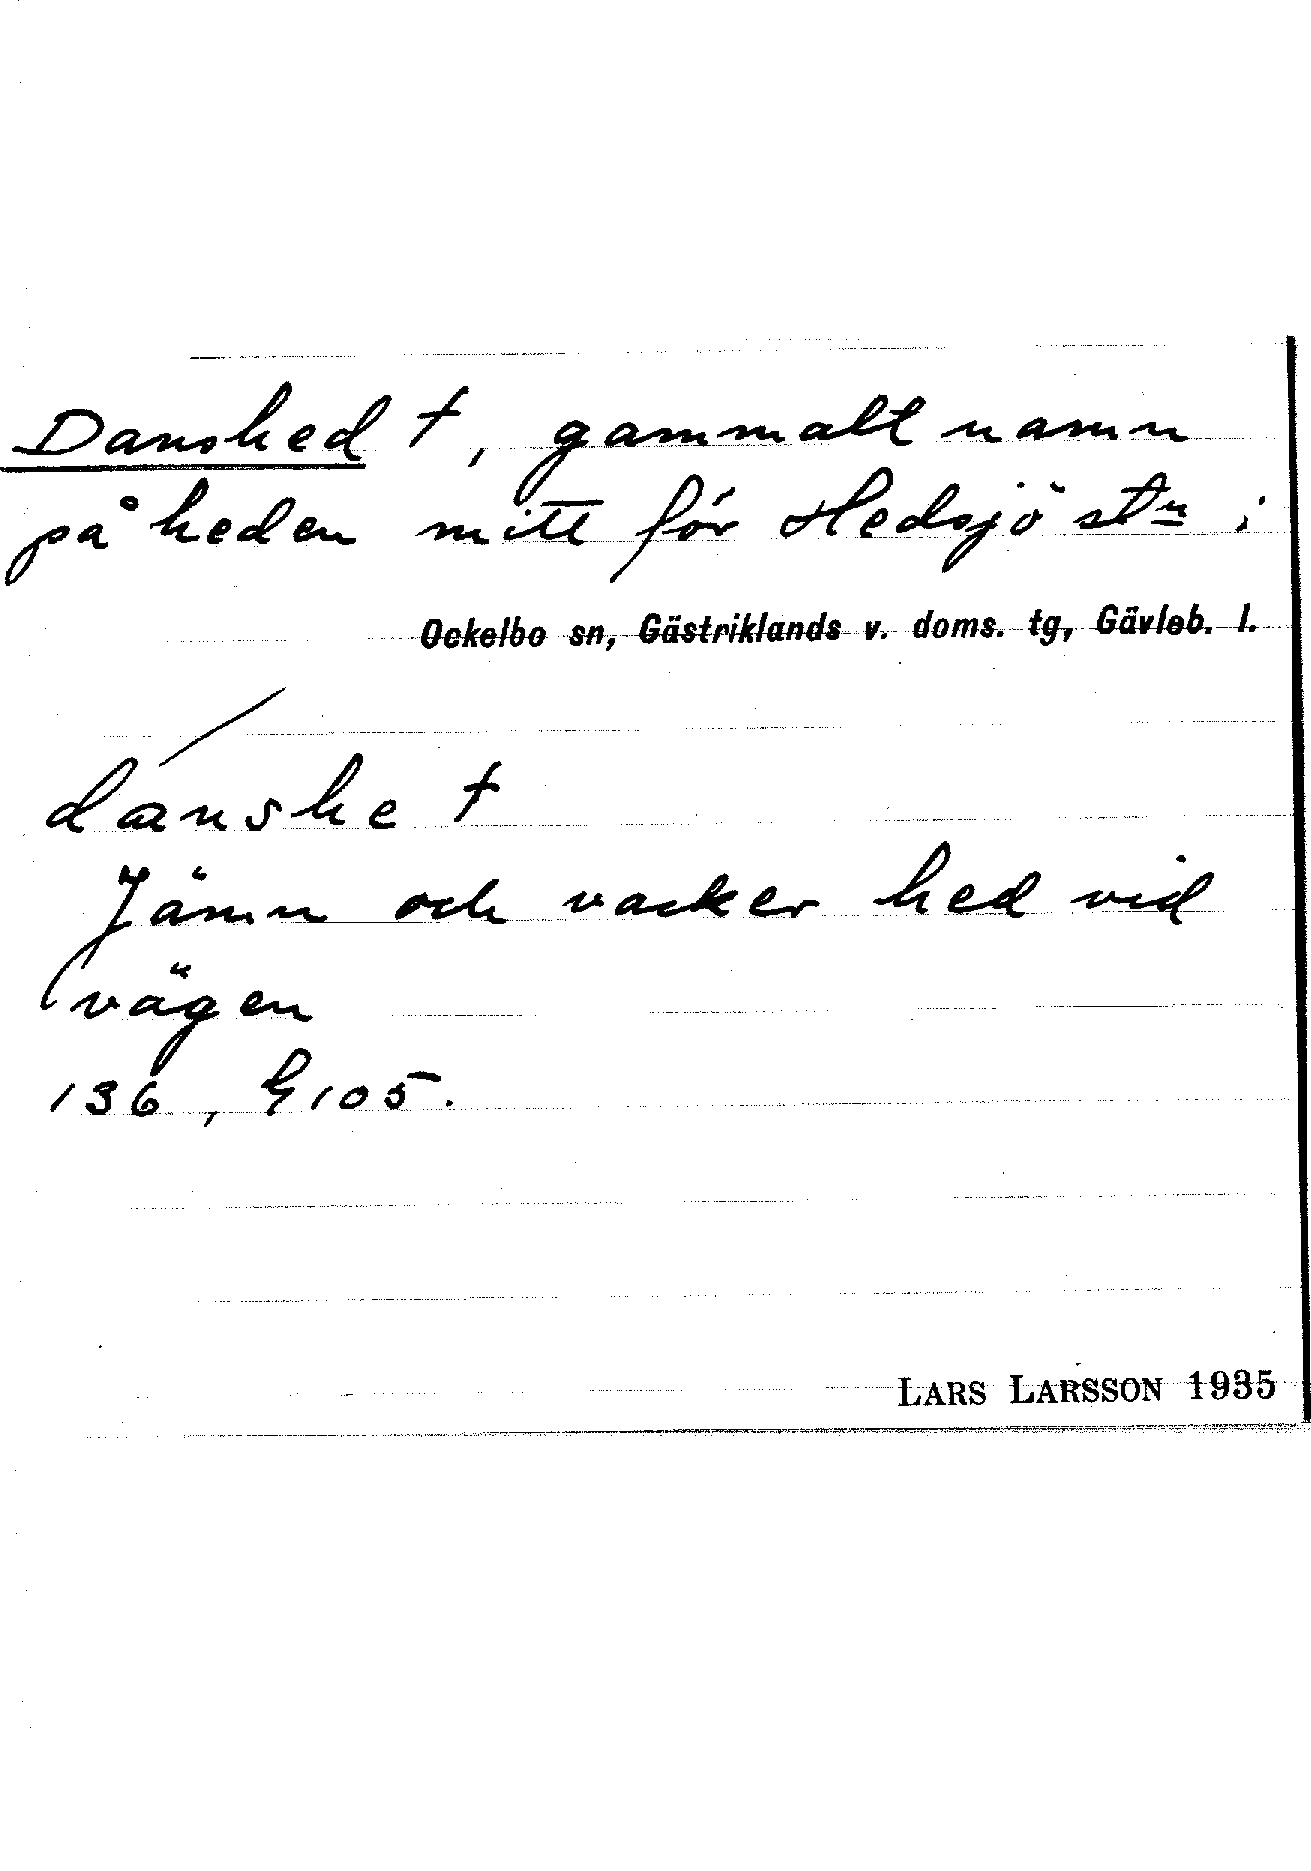 Danshed †, gammalt namn
på heden mitt för Hedsjö stn i
Ockelbo sn, Gästriklands v. doms. tg, Gävleb. l.
dánshe †
Jämn och vacker hed vid
vägen
136, G105.
LARS LARSSON 1935